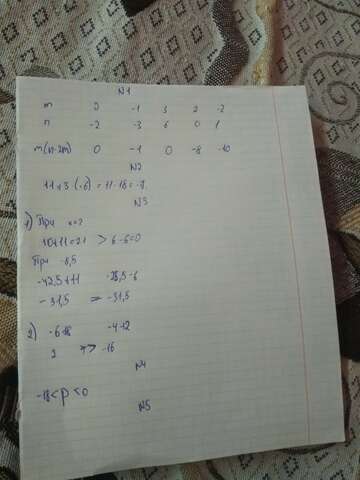 N1
m 0 -1 3 2 -2
n -2 -3 6 0 1
m(n-2m) 0 -1 0 -8 -10
N2
11+3·(-6)=11-18=-7
N3
1) При x=2
10+11=21 > 6-6=0
При -8,5
-42,5+11 -25,5-6
-31,5 = -31,5
2) -4-12
2 > -16
N4
-18<p<0
N5